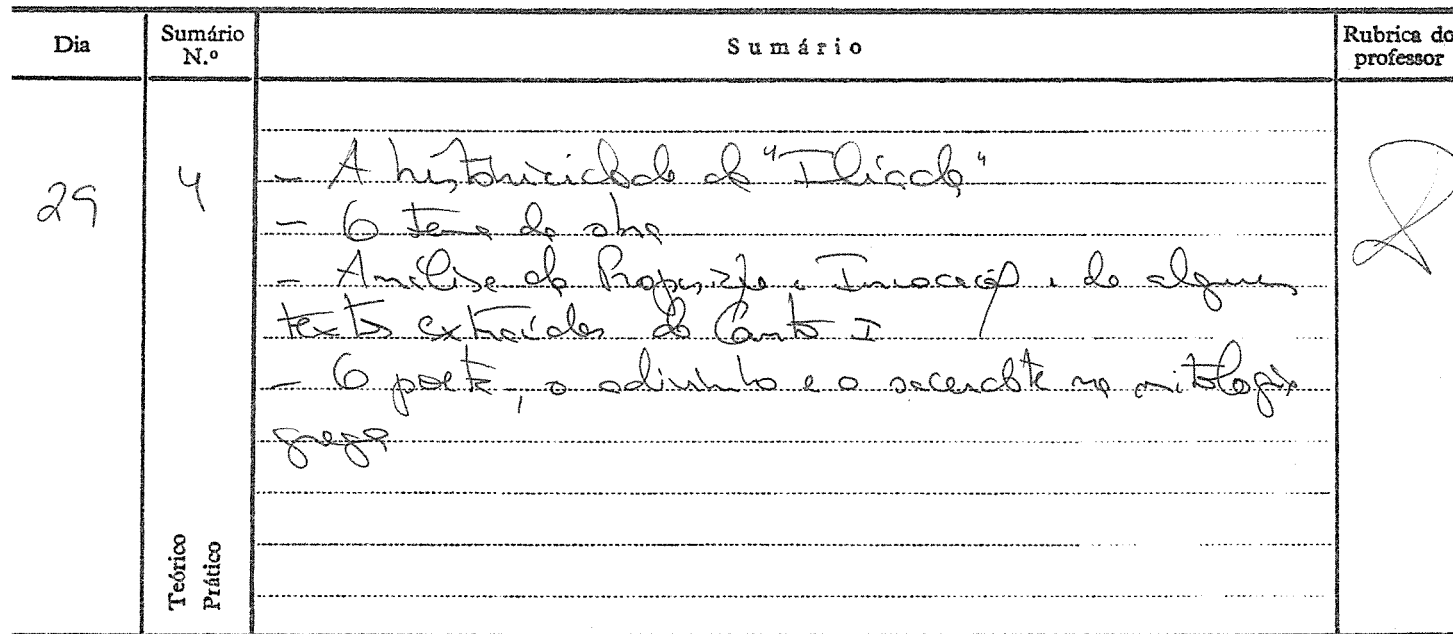 Dia
Sumário N.º
Sumário
Rubrica do professor
29
4
- A historicidade da "Ilíada"
- O tema da obra
- Análise da Proposição e Invocação e de alguns
textos extraídos do Canto I
- O poeta, o adivinho e o sacerdote na mitologia
grega
Teórico
Prático